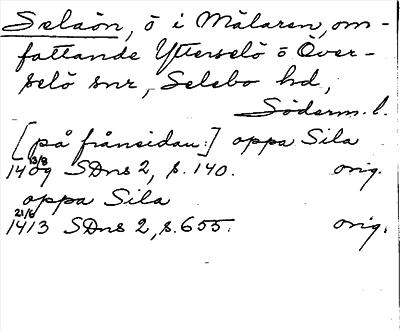 Selaön, ö i Mälaren, om-
fattande Ytterselö o Över-
selö snr, Selebo hd,
Söderm. l.
[på frånsidan:] oppa Sila
13/8
1409 SDns 2, s. 140. orig.
oppa Sila
21/6
1413 SDns 2, s. 655. orig.